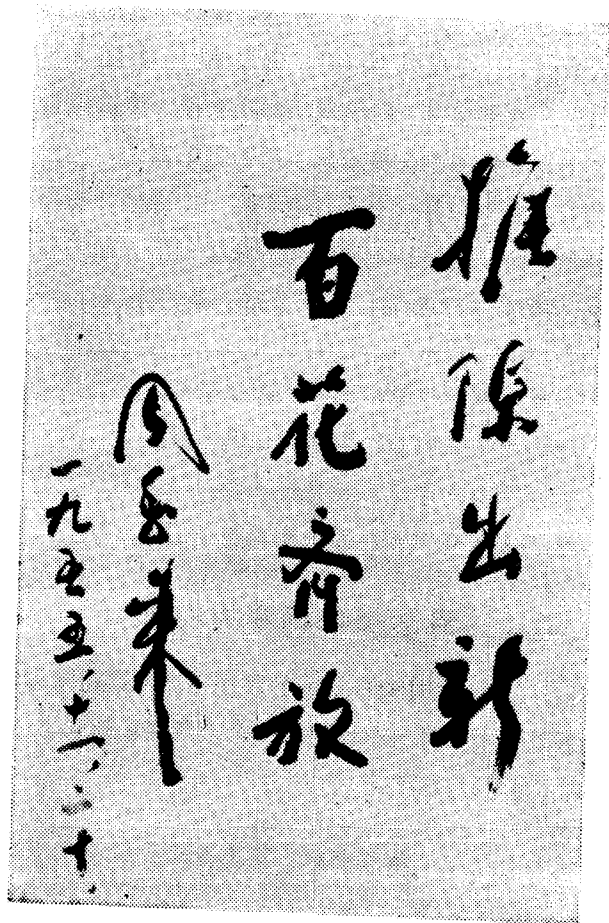 推陈出新
百花齐放
周恩来
一九五五、十一、二十、